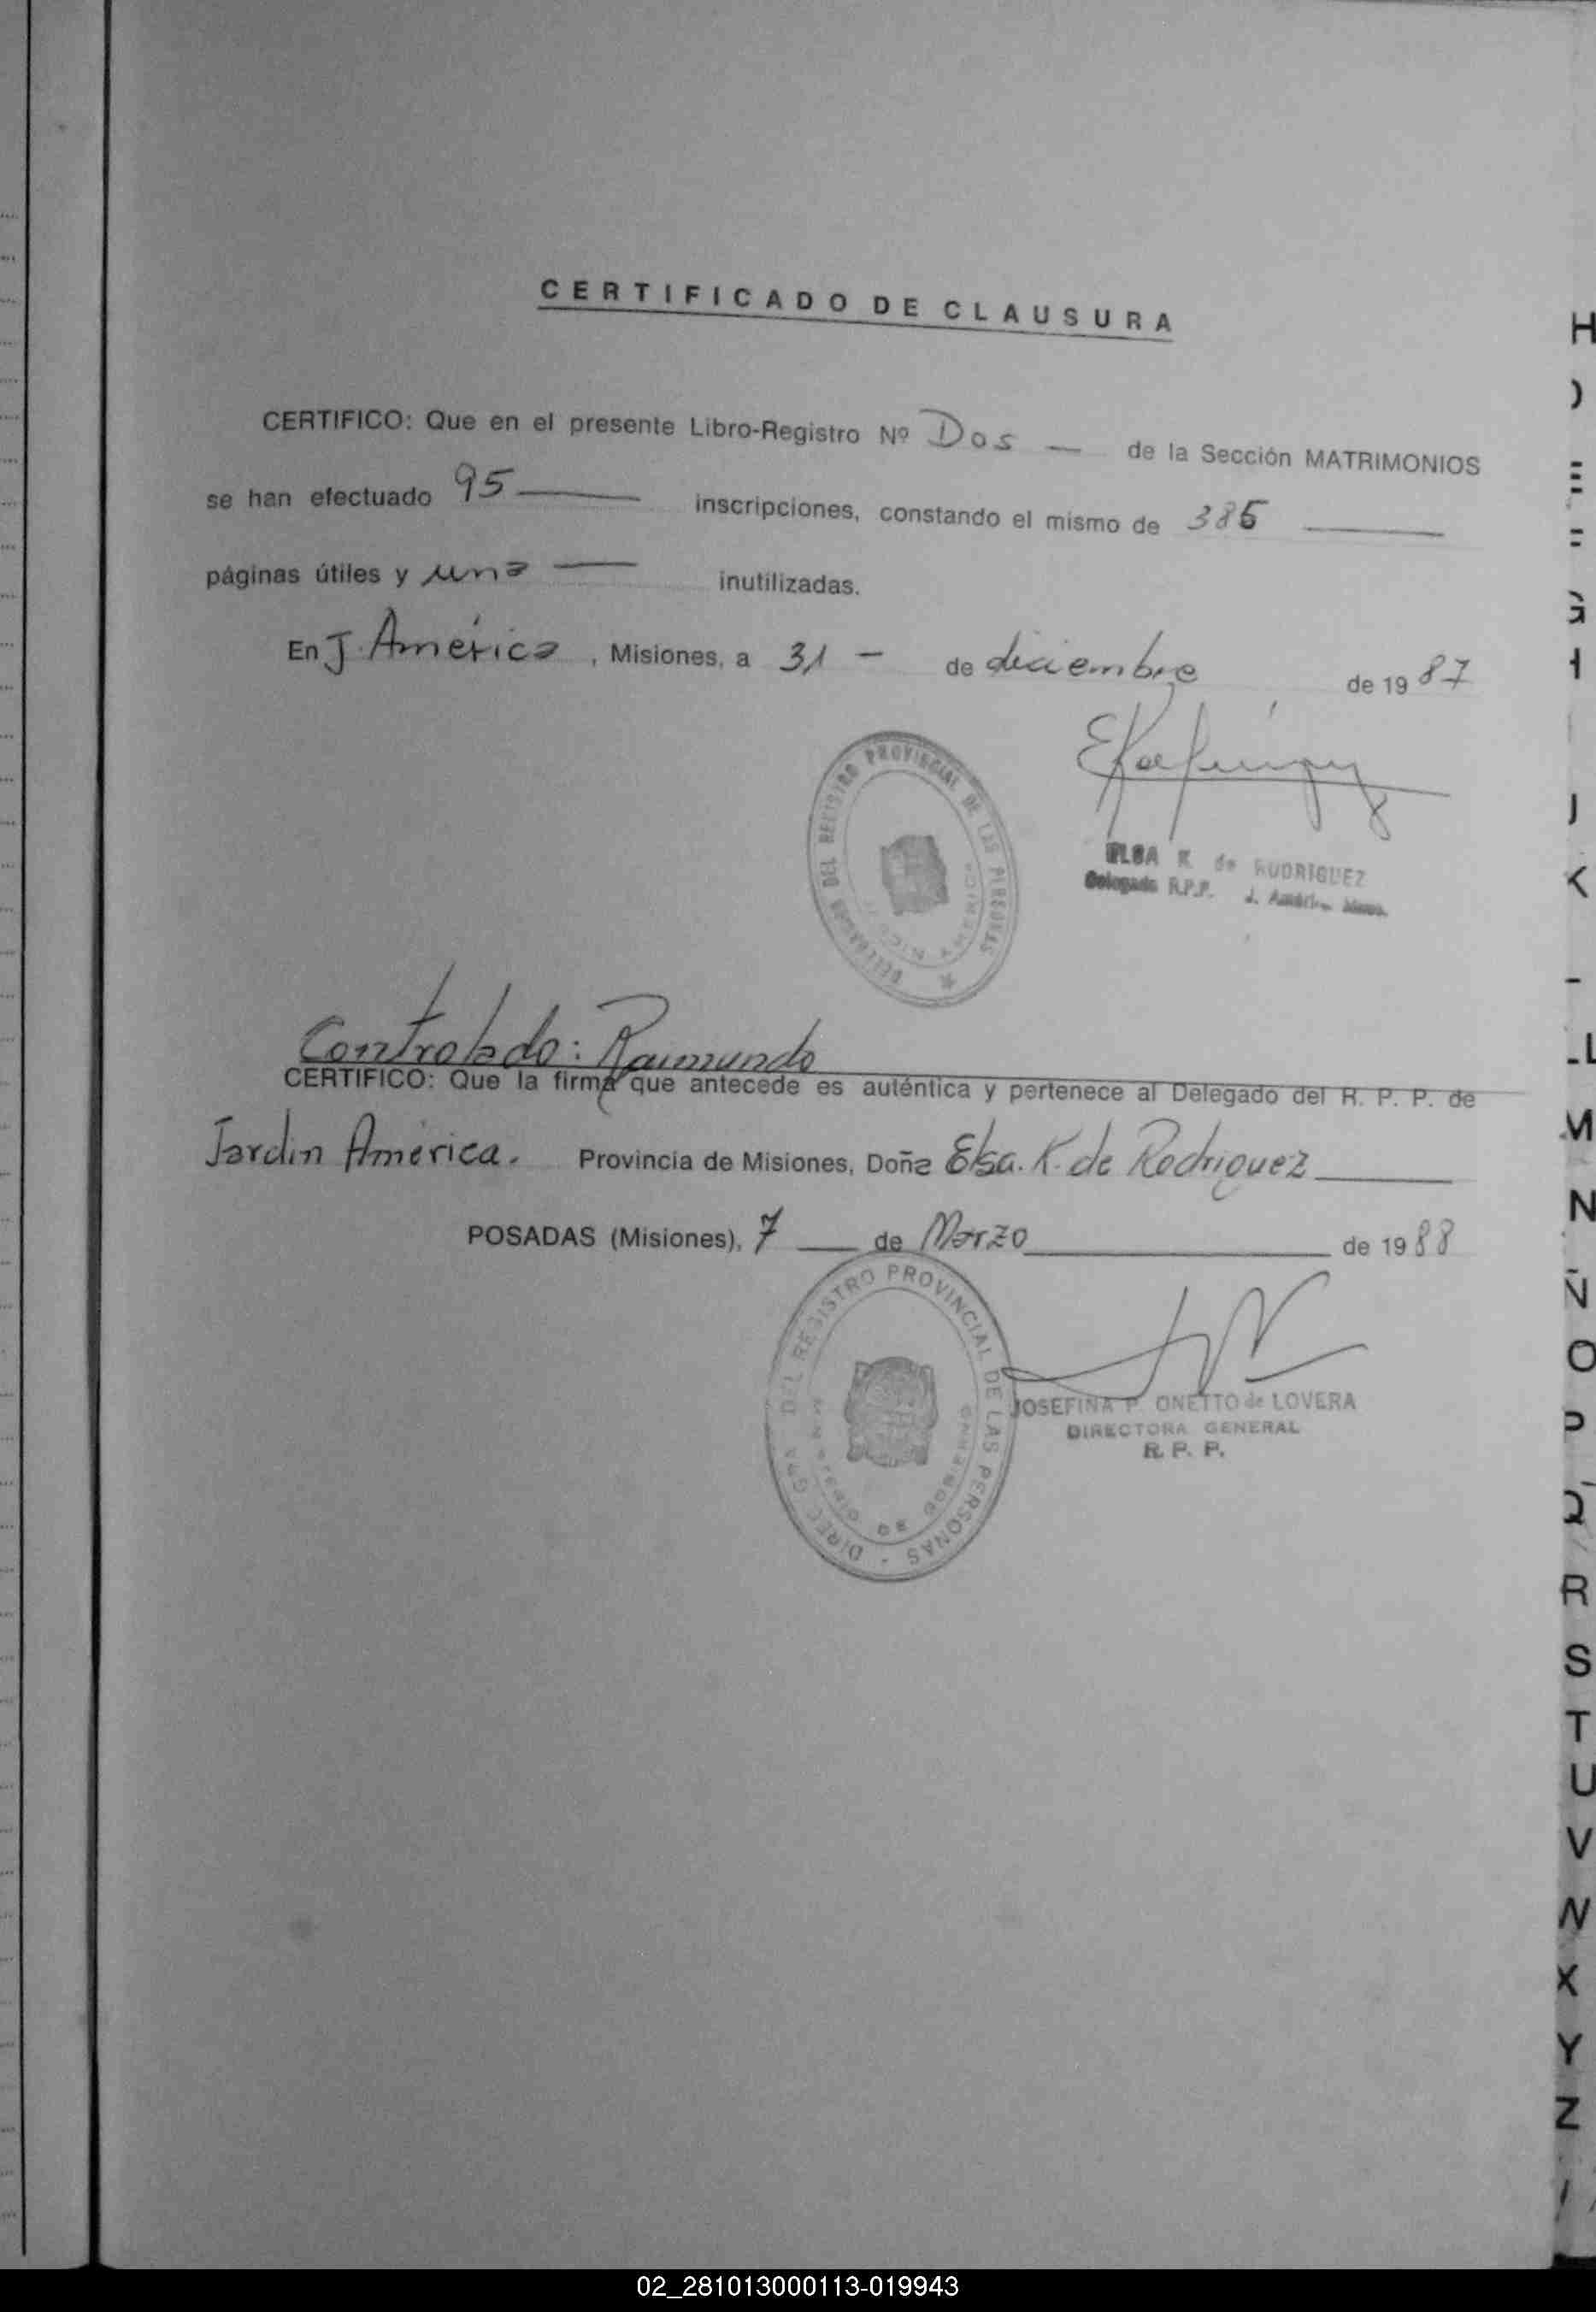 CERTIFICADO DE CLAUSURA
CERTIFICO: Que en el presente Libro-Registro Nº Dos — de la Sección MATRIMONIOS
se han efectuado 95 — inscripciones, constando el mismo de 386 —
páginas útiles y una — inutilizadas.
En J. América, Misiones, a 31 - de diciembre de 1987
DELEGACION DEL REGISTRO PROVINCIAL DE LAS PERSONAS
JARDIN AMERICA
ELSA K. de RODRIGUEZ
Delegada R.P.P. J. América Mnes.
Controlado: Raimundo
CERTIFICO: Que la firma que antecede es auténtica y pertenece al Delegado del R. P. P. de
Jardin América. Provincia de Misiones, Doña Elsa. K. de Rodriguez
POSADAS (Misiones), 7 — de Marzo de 1988
DIREC. GRAL. DEL REGISTRO PROVINCIAL DE LAS PERSONAS -
MINISTERIO DE GOBIERNO
JOSEFINA P. ONETTO de LOVERA
DIRECTORA GENERAL
R. P. P.
H
J
K
M
N
Ñ
O
P
Q
R
S
T
U
V
X
Y
Z
02_281013000113-019943